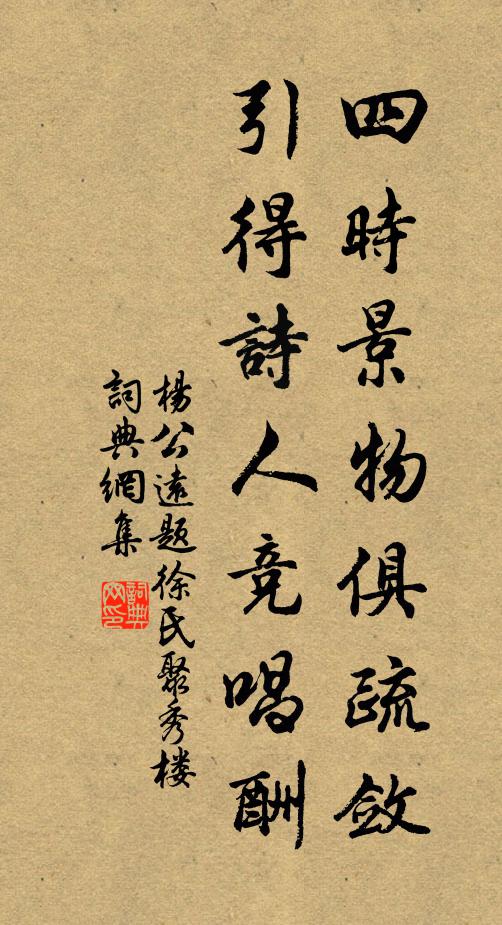 四時景物俱疏斂
引得詩人競唱酬
楊公遠題徐氏聚秀楼
詞典網集
詞典
网印